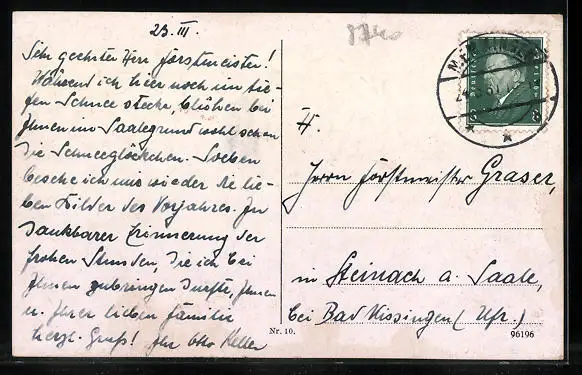 23. III.
Sehr geehrter Herr Forstmeister!
Während ich hier noch im tie-
fen Schnee stecke, blühen bei
Ihnen im Saalegrund wohl schon
die Schneeglöckchen. Soeben
besehe ich mir wieder die lie-
ben Bilder des Vorjahres. In
dankbarer Erinnerung der
frohen Stunden, die ich bei
Ihnen zubringen durfte, Ihnen
u. Ihrer lieben Familie
herzl. Gruß! Ihr Otto Keller
H.
Herrn Forstmeister Graser,
in Steinach a. Saale,
bei Bad Kissingen (Ufr.)
Nr. 10.
96196
8